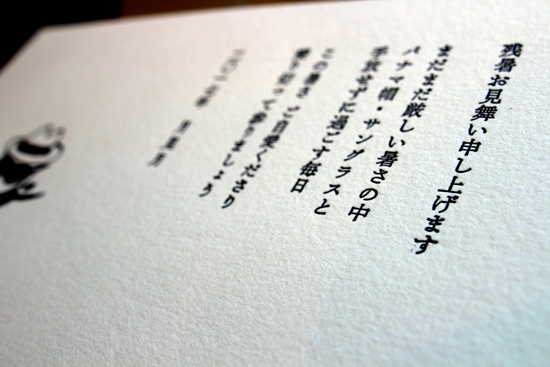 残暑お見舞い申し上げます
まだまだ厳しい暑さの中
パナマ帽・サングラスと
手放せずに過ごす毎日
この暑さ ご自愛くださり
乗り切って参りましょう